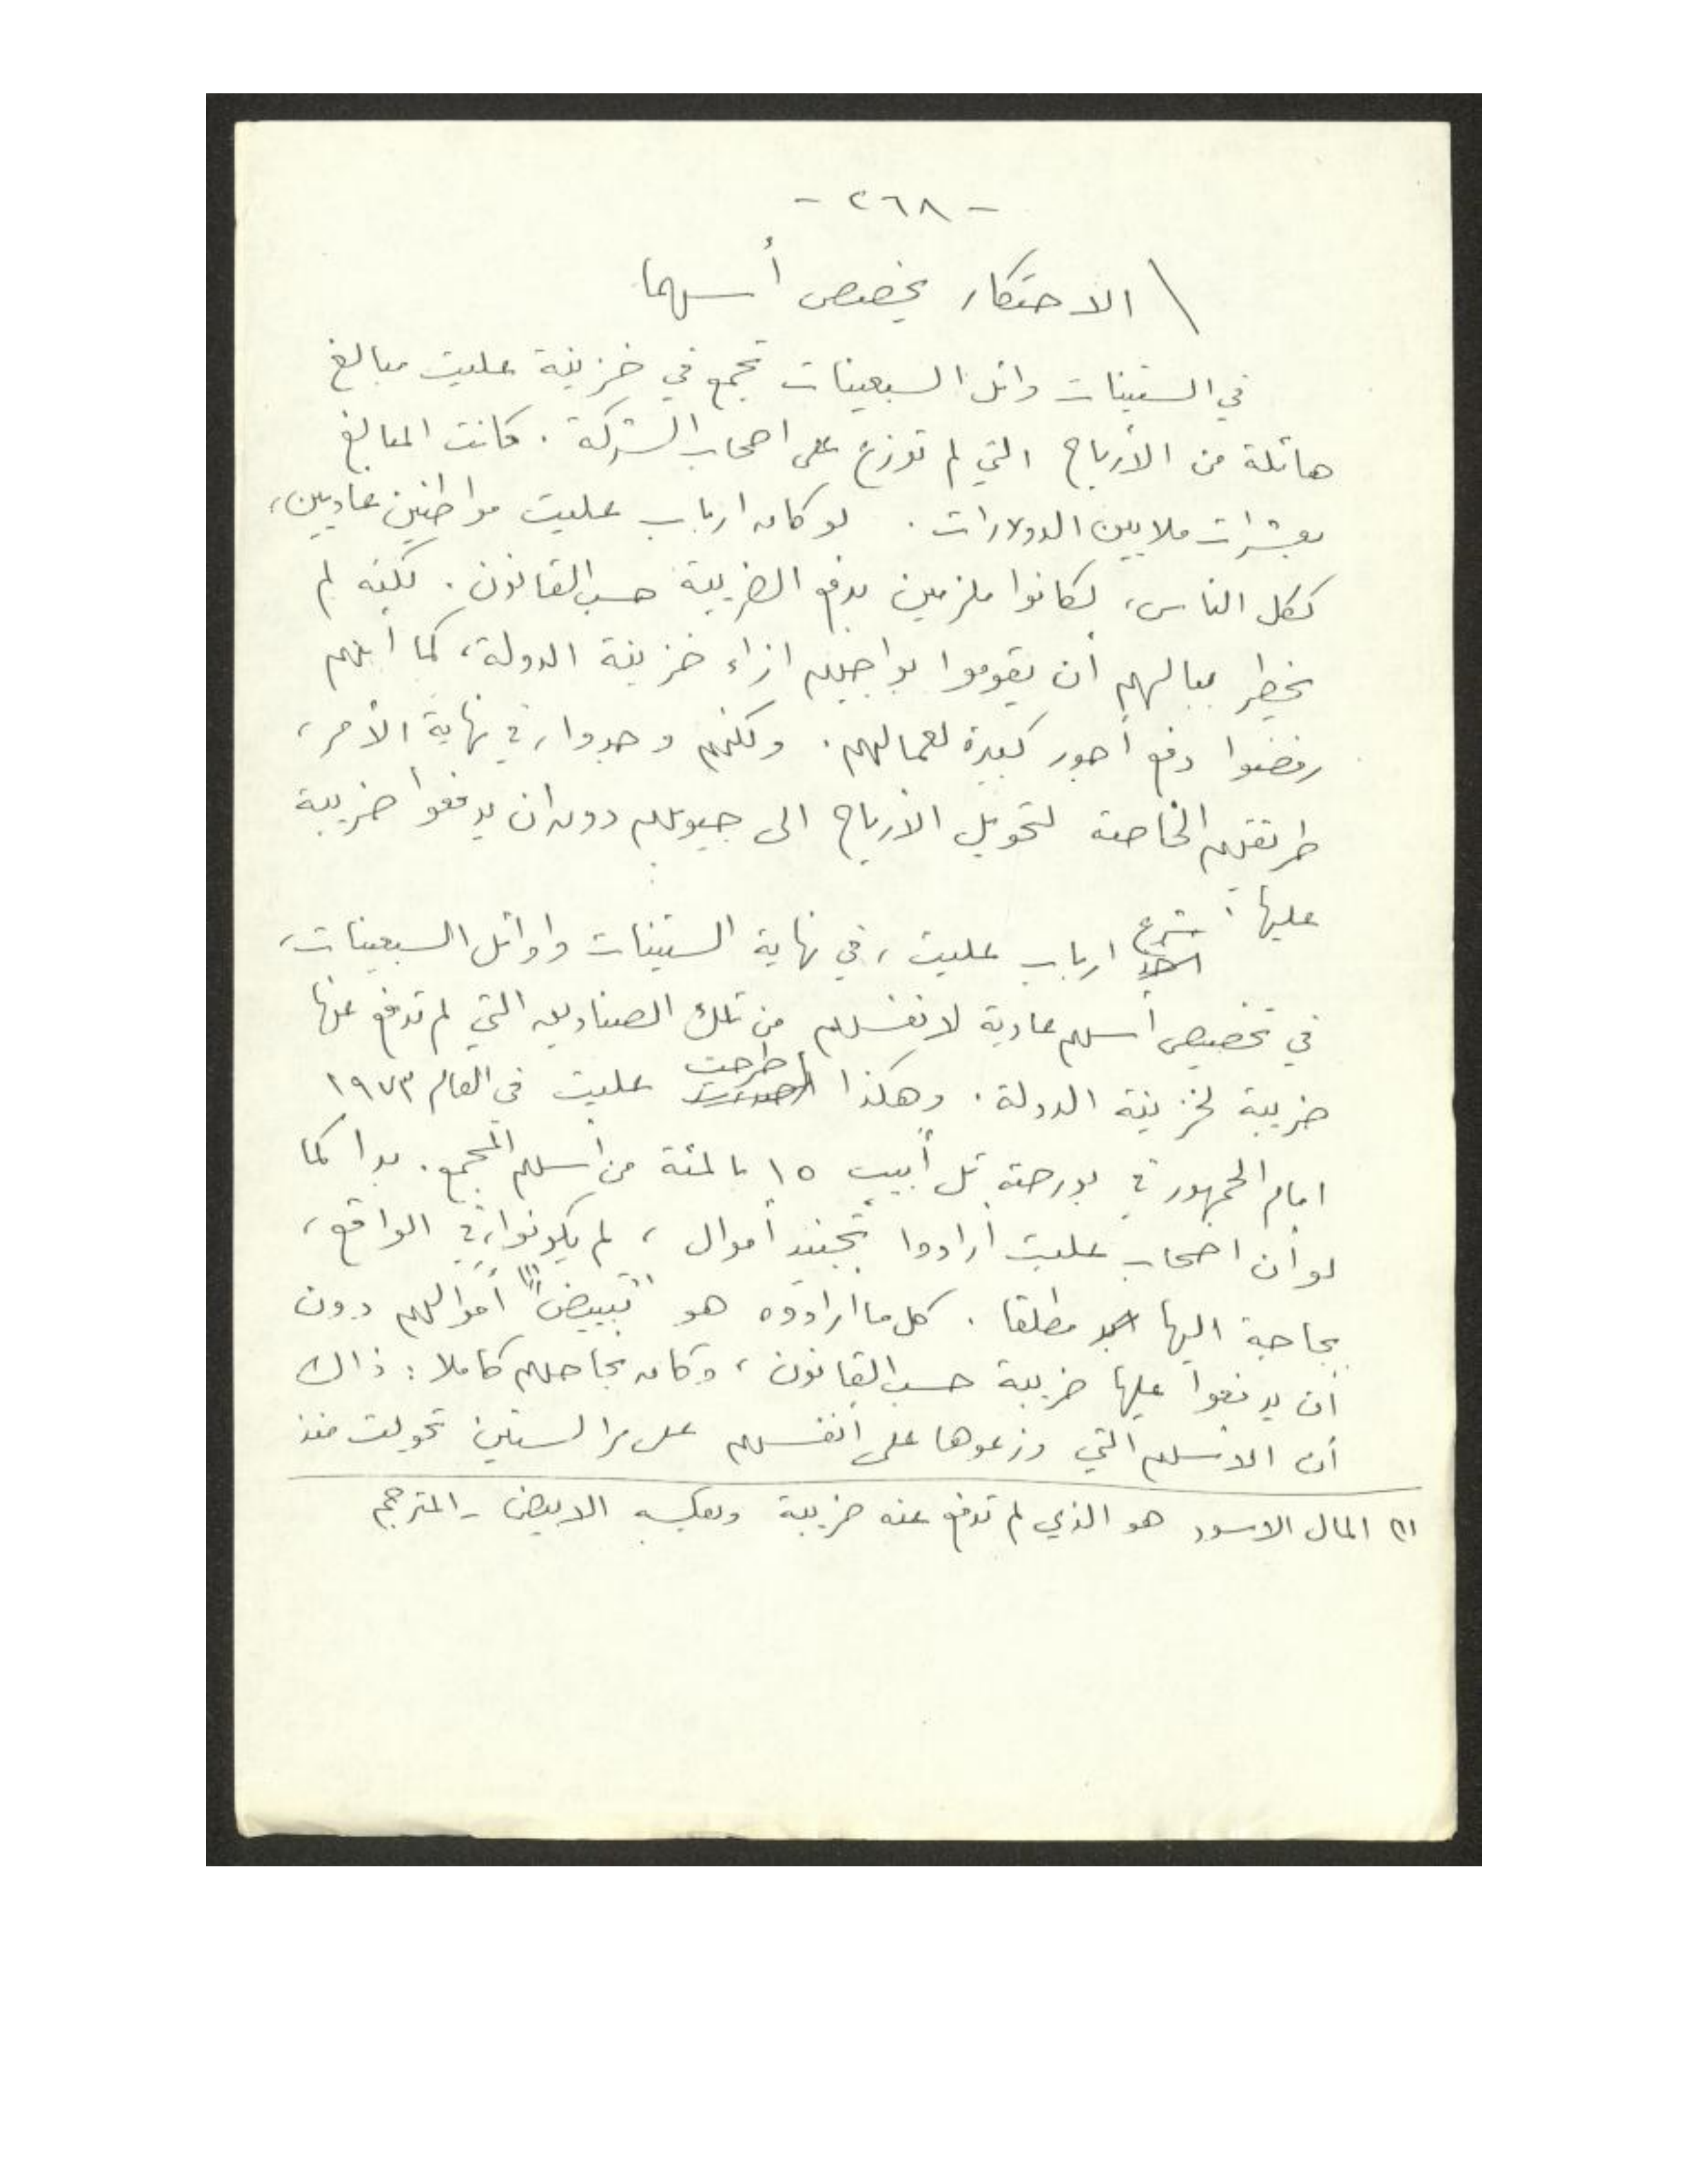 - ٢٦٨ -
الاحتكار يخصص أسهما
في الستينات واثل السبعينات تجمع في خزينة عليت مبالغ
هائلة من الأرباح التي لم توزع على اصحاب الشركة . كانت المبالغ
بعشرات ملايين الدولارات . لو كان ارباب عليت مواطنين عاديين،
ككل الناس، لكانوا ملزمين بدفع الضريبة حسب القانون . لكنه لم
يخطر ببالهم أن يقوموا بواجبهم ازاء خزينة الدولة، كما أنهم
رفضوا دفع أجور كبيرة لعمالهم . ولكنهم وجدوا، في نهاية الأمر،
طريقتهم الخاصة لتحويل الأرباح الى جيوبهم دون ان يدفعوا ضريبة
عليها .
شرع ارباب عليت، في نهاية الستينات واوائل السبعينات،
في تخصيص أسهم عادية لانفسهم من تلك الصناديق التي لم تدفع عنها
ضريبة لخزينة الدولة . وهكذا طرحت عليت في العام ١٩٧٣
امام الجمهور في بورصة تل أبيب ١٥ بالمئة من أسهم المجمع . بدا كما
لو أن اصحاب عليت أرادوا تجنيد أموال ، لم يكونوا، في الواقع،
بحاجة اليها مطلقا . كل ما ارادوه هو "تبييض"(١) أموالهم دون
أن يدفعوا عليها ضريبة حسب القانون، وكان نجاحهم كاملا : ذاك
أن الاسهم التي وزعوها على أنفسهم على مر السنين تحولت منذ
(١) المال الاسود هو الذي لم تدفع عنه ضريبة وبعكسه الابيض - المترجم